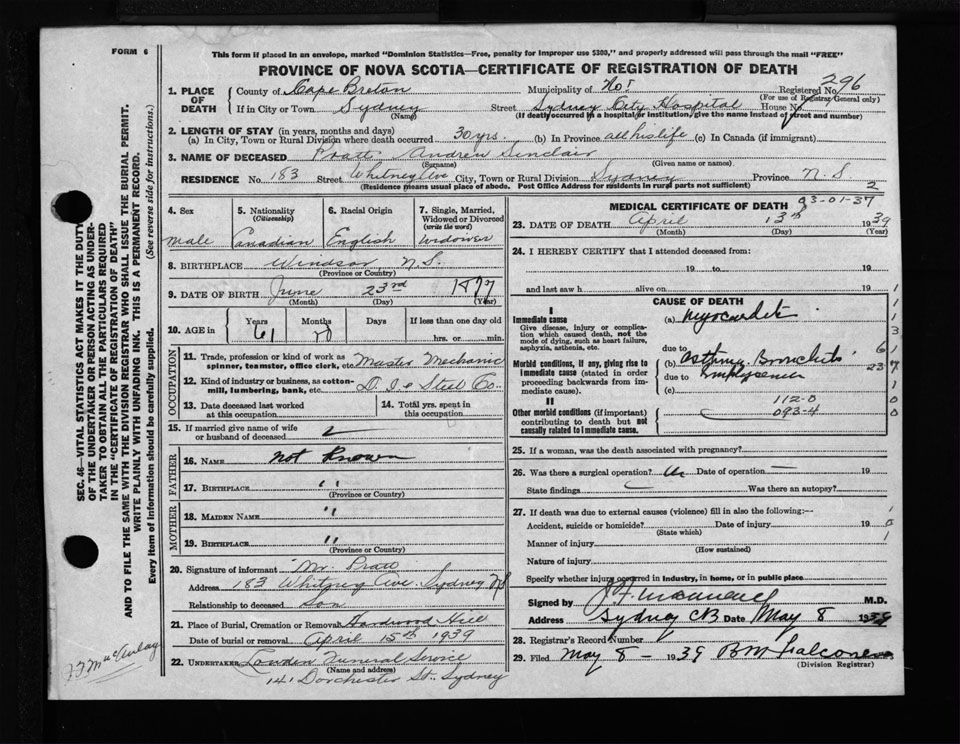 FORM 6
This form if placed in an envelope, marked "Dominion Statistics—Free, penalty for improper use $300," and properly addressed will pass through the mail "FREE"
PROVINCE OF NOVA SCOTIA—CERTIFICATE OF REGISTRATION OF DEATH
296
1. PLACE OF DEATH
County of Cape Breton Municipality of Registered No.
(For use of Registrar General only)
If in City or Town Sydney Street Sydney City Hospital House No.
(Name) (If death occurred in a hospital or institution, give the name instead of street and number)
2. LENGTH OF STAY (in years, months and days)
(a) In City, Town or Rural Division where death occurred 30 yrs. (b) In Province all his life (c) In Canada (if immigrant)
3. NAME OF DECEASED Pratt Andrew Sinclair
(Surname) (Given name or names)
RESIDENCE No. 183 Street Whitney Ave City, Town or Rural Division Sydney Province N.S
(Residence means usual place of abode. Post Office Address for residents in rural parts not sufficient)
2
4. Sex
5. Nationality (Citizenship)
6. Racial Origin
7. Single, Married, Widowed or Divorced (write the word)
Male Canadian English Widower
8. BIRTHPLACE Windsor, N.S.
(Province or Country)
9. DATE OF BIRTH June 23rd 1877
(Month) (Day) (Year)
10. AGE in
Years Months Days If less than one day old
61
hrs. or min.
OCCUPATION
11. Trade, profession or kind of work as spinner, teamster, office clerk, etc. Master Mechanic
12. Kind of industry or business, as cotton-mill, lumbering, bank, etc. Steel Co.
13. Date deceased last worked at this occupation
14. Total yrs. spent in this occupation
15. If married give name of wife or husband of deceased
FATHER
16. NAME not known
17. BIRTHPLACE "
(Province or Country)
MOTHER
18. MAIDEN NAME "
19. BIRTHPLACE "
(Province or Country)
20. Signature of informant Mr. Pratt
Address 183 Whitney Ave. Sydney N.S
Relationship to deceased Son
21. Place of Burial, Cremation or Removal Hardwood Hill
Date of burial or removal April 15th 1939
22. UNDERTAKER Funeral Service
(Name and address)
141 Dorchester St., Sydney
MEDICAL CERTIFICATE OF DEATH
93-01-37
23. DATE OF DEATH April 13th 1939
(Month) (Day) (Year)
24. I HEREBY CERTIFY that I attended deceased from:
19 to 19
and last saw h alive on 19
CAUSE OF DEATH
I
Immediate cause
Give disease, injury or complication which caused death, not the mode of dying, such as heart failure, asphyxia, asthenia, etc.
(a) Myocarditis
due to
Morbid conditions, if any, giving rise to immediate cause (stated in order proceeding backwards from immediate cause).
(b) Asthma, Bronchitis
due to Emphysema
(c)
II
Other morbid conditions (if important) contributing to death but not causally related to immediate cause.
112-0
093-4
25. If a woman, was the death associated with pregnancy?
26. Was there a surgical operation? Date of operation 19
State findings Was there an autopsy?
27. If death was due to external causes (violence) fill in also the following:—
Accident, suicide or homicide? Date of injury 19
(State which)
Manner of injury
(How sustained)
Nature of injury
Specify whether injury occurred in industry, in home, or in public place
Signed by M.D.
Address Sydney CB Date May 8 1939
28. Registrar's Record Number
29. Filed May 8 - 1939
(Division Registrar)
SEC. 46—VITAL STATISTICS ACT MAKES IT THE DUTY
OF THE UNDERTAKER OR PERSON ACTING AS UNDERTAKER TO OBTAIN ALL THE PARTICULARS REQUIRED
IN THE "CERTIFICATE OF REGISTRATION OF DEATH"
AND TO FILE THE SAME WITH THE DIVISION REGISTRAR WHO SHALL ISSUE THE BURIAL PERMIT.
WRITE PLAINLY WITH UNFADING INK. THIS IS A PERMANENT RECORD.
Every item of information should be carefully supplied. (See reverse side for instructions.)